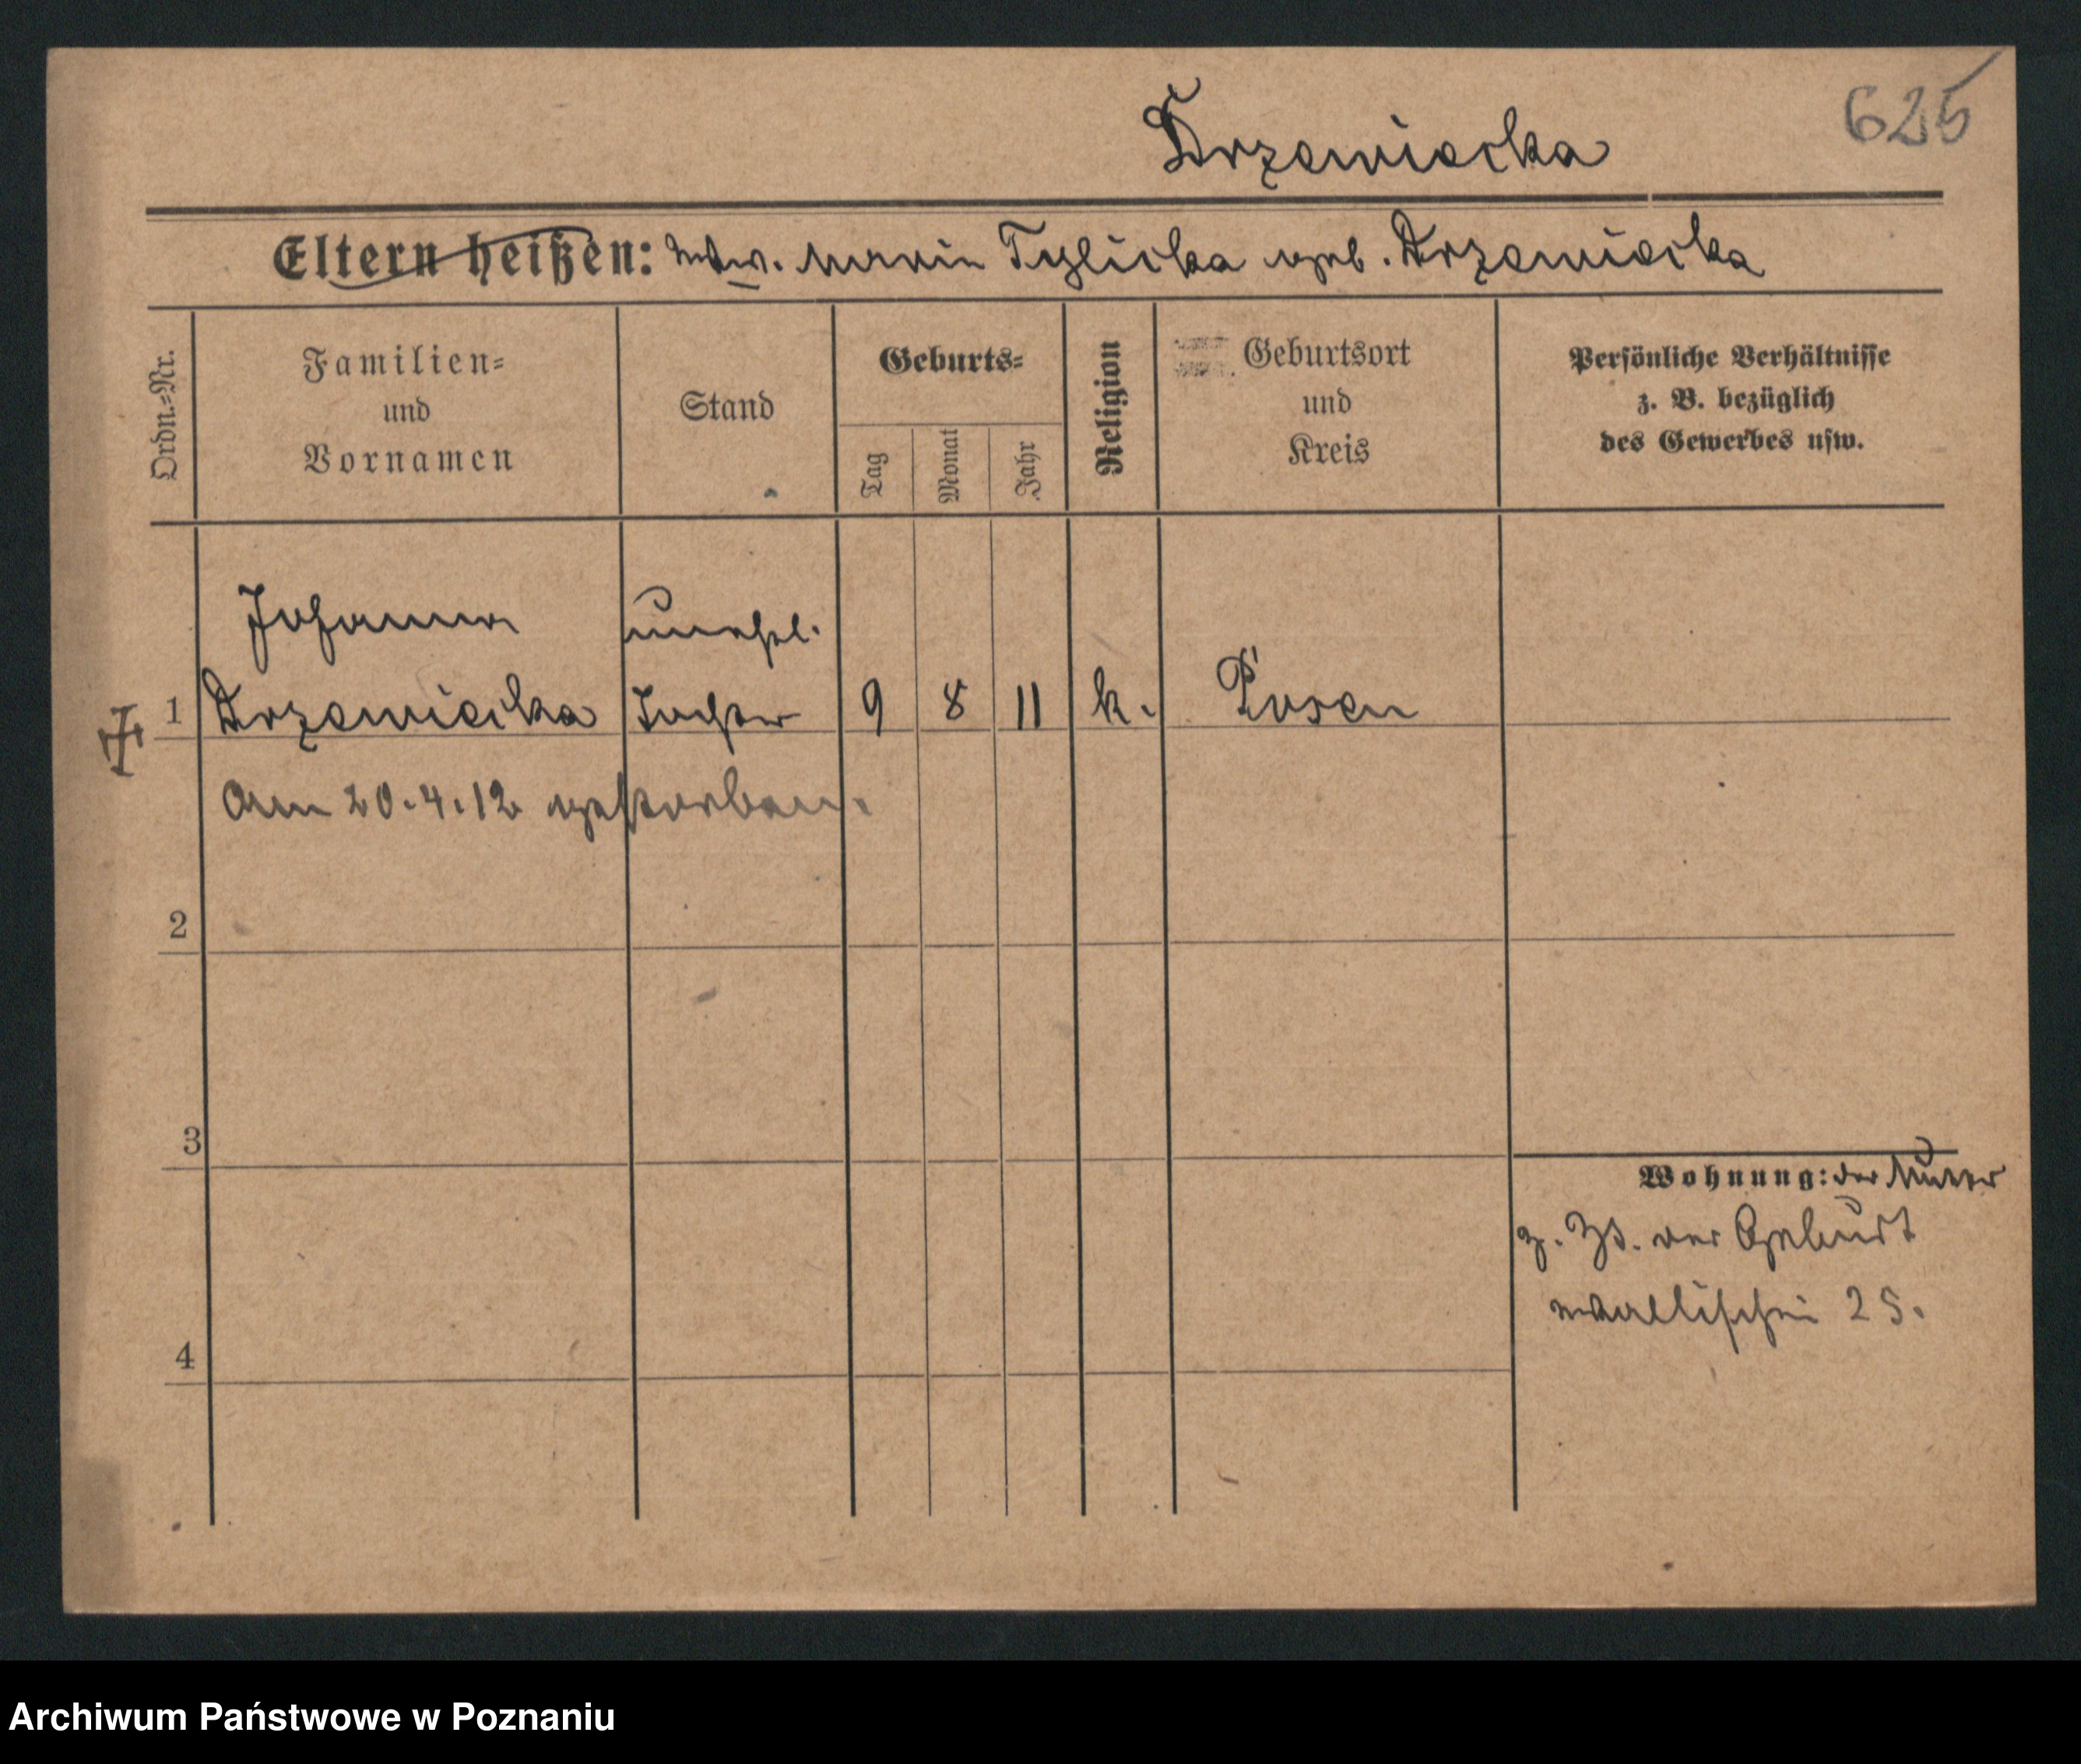 625
Drzewiecka
Eltern heißen: Wtw. Marie Tylicka geb. Drzewiecka
Ordn.-Nr.
Familien- und Vornamen
Stand
Geburts-
Tag
Monat
Jahr
Religion
Geburtsort und Kreis
Persönliche Verhältnisse
z. B. bezüglich
des Gewerbes usw.
Johanna unehel.
1 Drzewiecka Tochter 9 8 11 k. Posen
am 20.4.12 gestorben.
2
3
Wohnung: der Mutter
z. Zt. der Geburt
Wallischei 25.
4
Archiwum Państwowe w Poznaniu